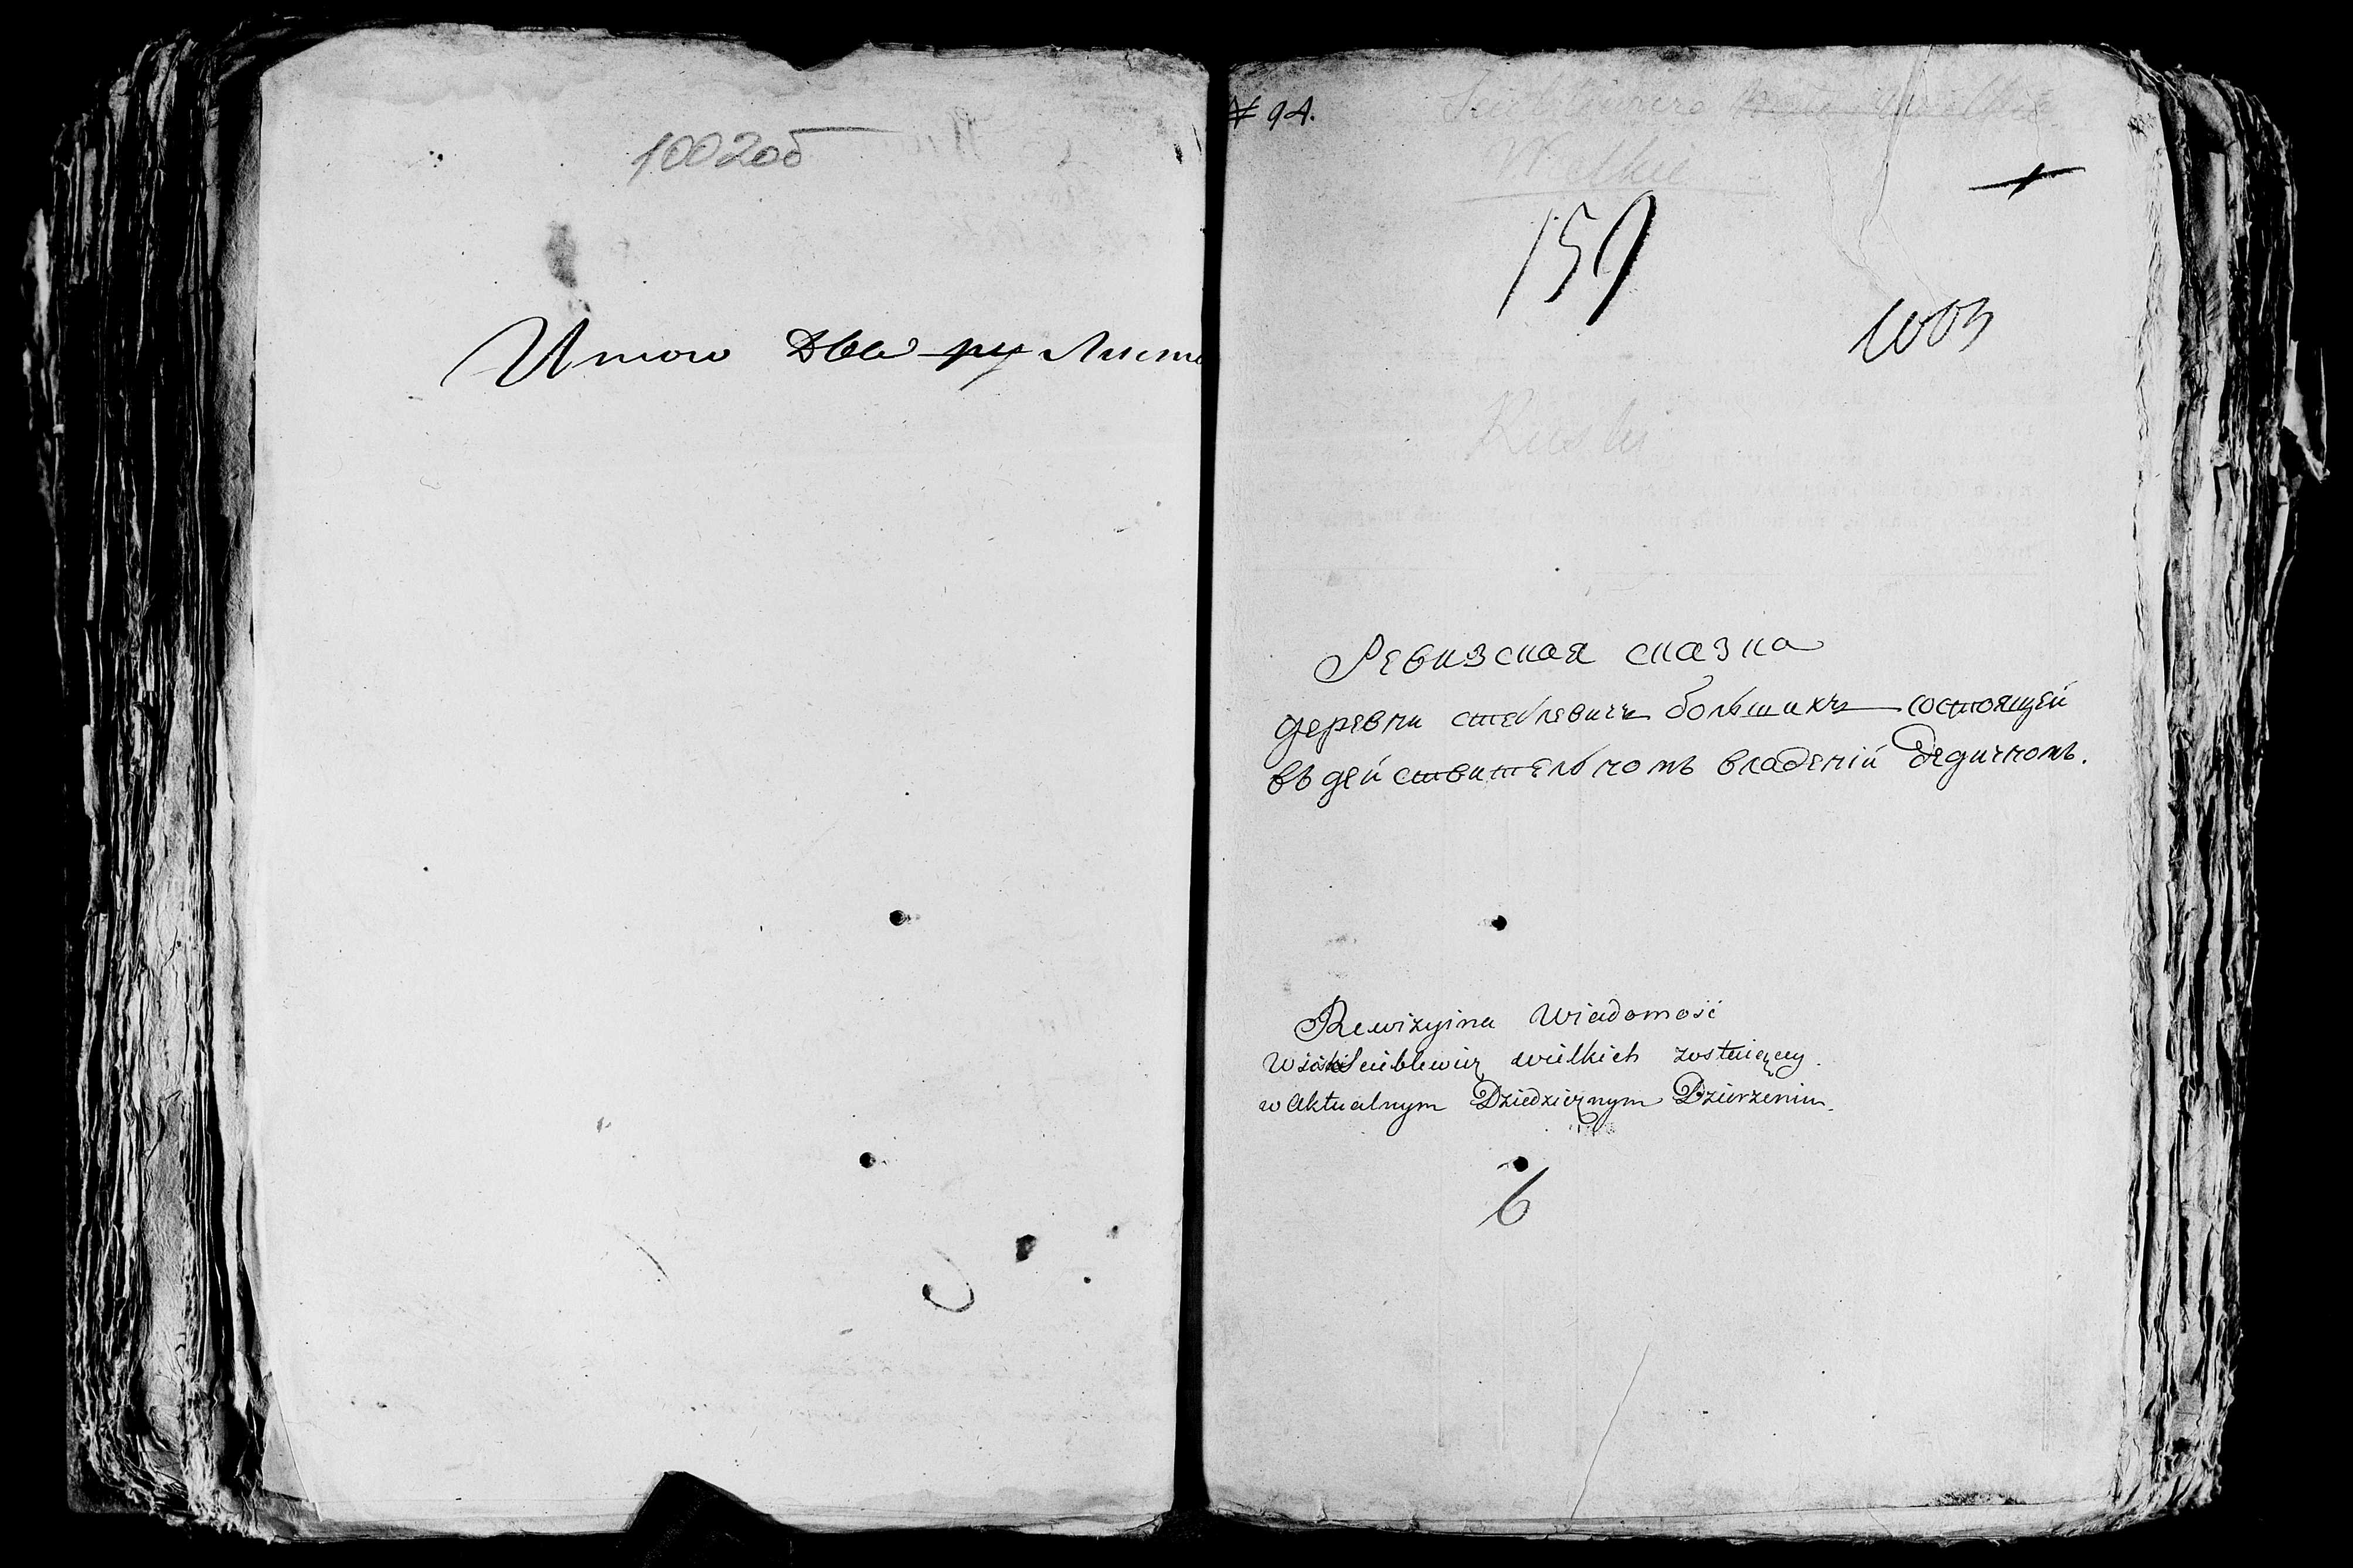 1002об
Итого два листа
№ 94.
Wielkie
159
1003
Ruski
Ревизская сказка
деревни стеблевичь большихъ состоящей
въ действительномъ владеніи дедичномъ.
Rewizyina Wiadomość
Wioski Scieblewicz wielkich zostaiączey
w Aktualnym Dziedzicznym Dzierzeniu.
6